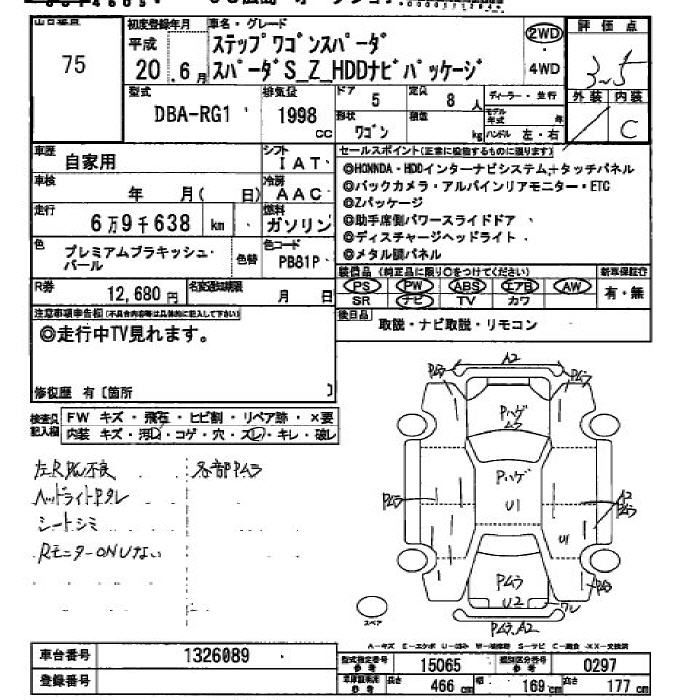 初度登録年月
車名・グレード
75
平成
20 . 6 月
ステップワゴンスパーダ
スパーダS_Z_HDDナビパッケージ
2WD
4WD
評価点
3.5
外装
内装
C
型式
DBA-RG1
排気量
1998 cc
ドア
5
定員
8 人
ディーラー・並行
形状
ワゴン
積量
kg
モデル年式
年
ハンドル 左・右
車歴
自家用
シフト
IAT
車検
年 月( 日)
冷房
AAC
走行
6万9千638 km
燃料
ガソリン
色
プレミアムブラキッシュ・パール
色替
色コード
PB81P
R券
12,680 円
名変通知期限
月 日
セールスポイント(正常に稼働するものに限ります)
◎HONNDA・HDDインターナビシステム+タッチパネル
◎バックカメラ・アルパインリアモニター・ETC
◎Zパッケージ
◎助手席側パワースライドドア
◎ディスチャージヘッドライト
◎メタル調パネル
装備品(純正品に限り○をつけてください)
新車保証書
PS PW ABS エアB AW
SR ナビ TV カワ
有・無
後日品
取説・ナビ取説・リモコン
注意事項申告欄(不具合内容等は具体的に記入して下さい)
◎走行中TV見れます。
修復歴 有〔箇所 〕
検査員記入欄
FW キズ・飛石・ヒビ割・リペア跡・×要
内装 キズ・汚レ・コゲ・穴・スレ・キレ・破レ
左R PW不良
各部Pムラ
ヘッドライトPタレ
シートシミ
RモニターONしない
A2
Pムラ
Pムラ
Pハゲ
ムラ
Pハゲ
U1
Pムラ
A2
Pムラ
U1
Pムラ
Pムラ
U2
ワレ
Pムラ,A2
スペア
車台番号
1326089
登録番号
型式指定番号
参考
15065
類別区分番号
参考
0297
車庫証明用
参考
長さ
466 cm
幅
169 cm
高さ
177 cm